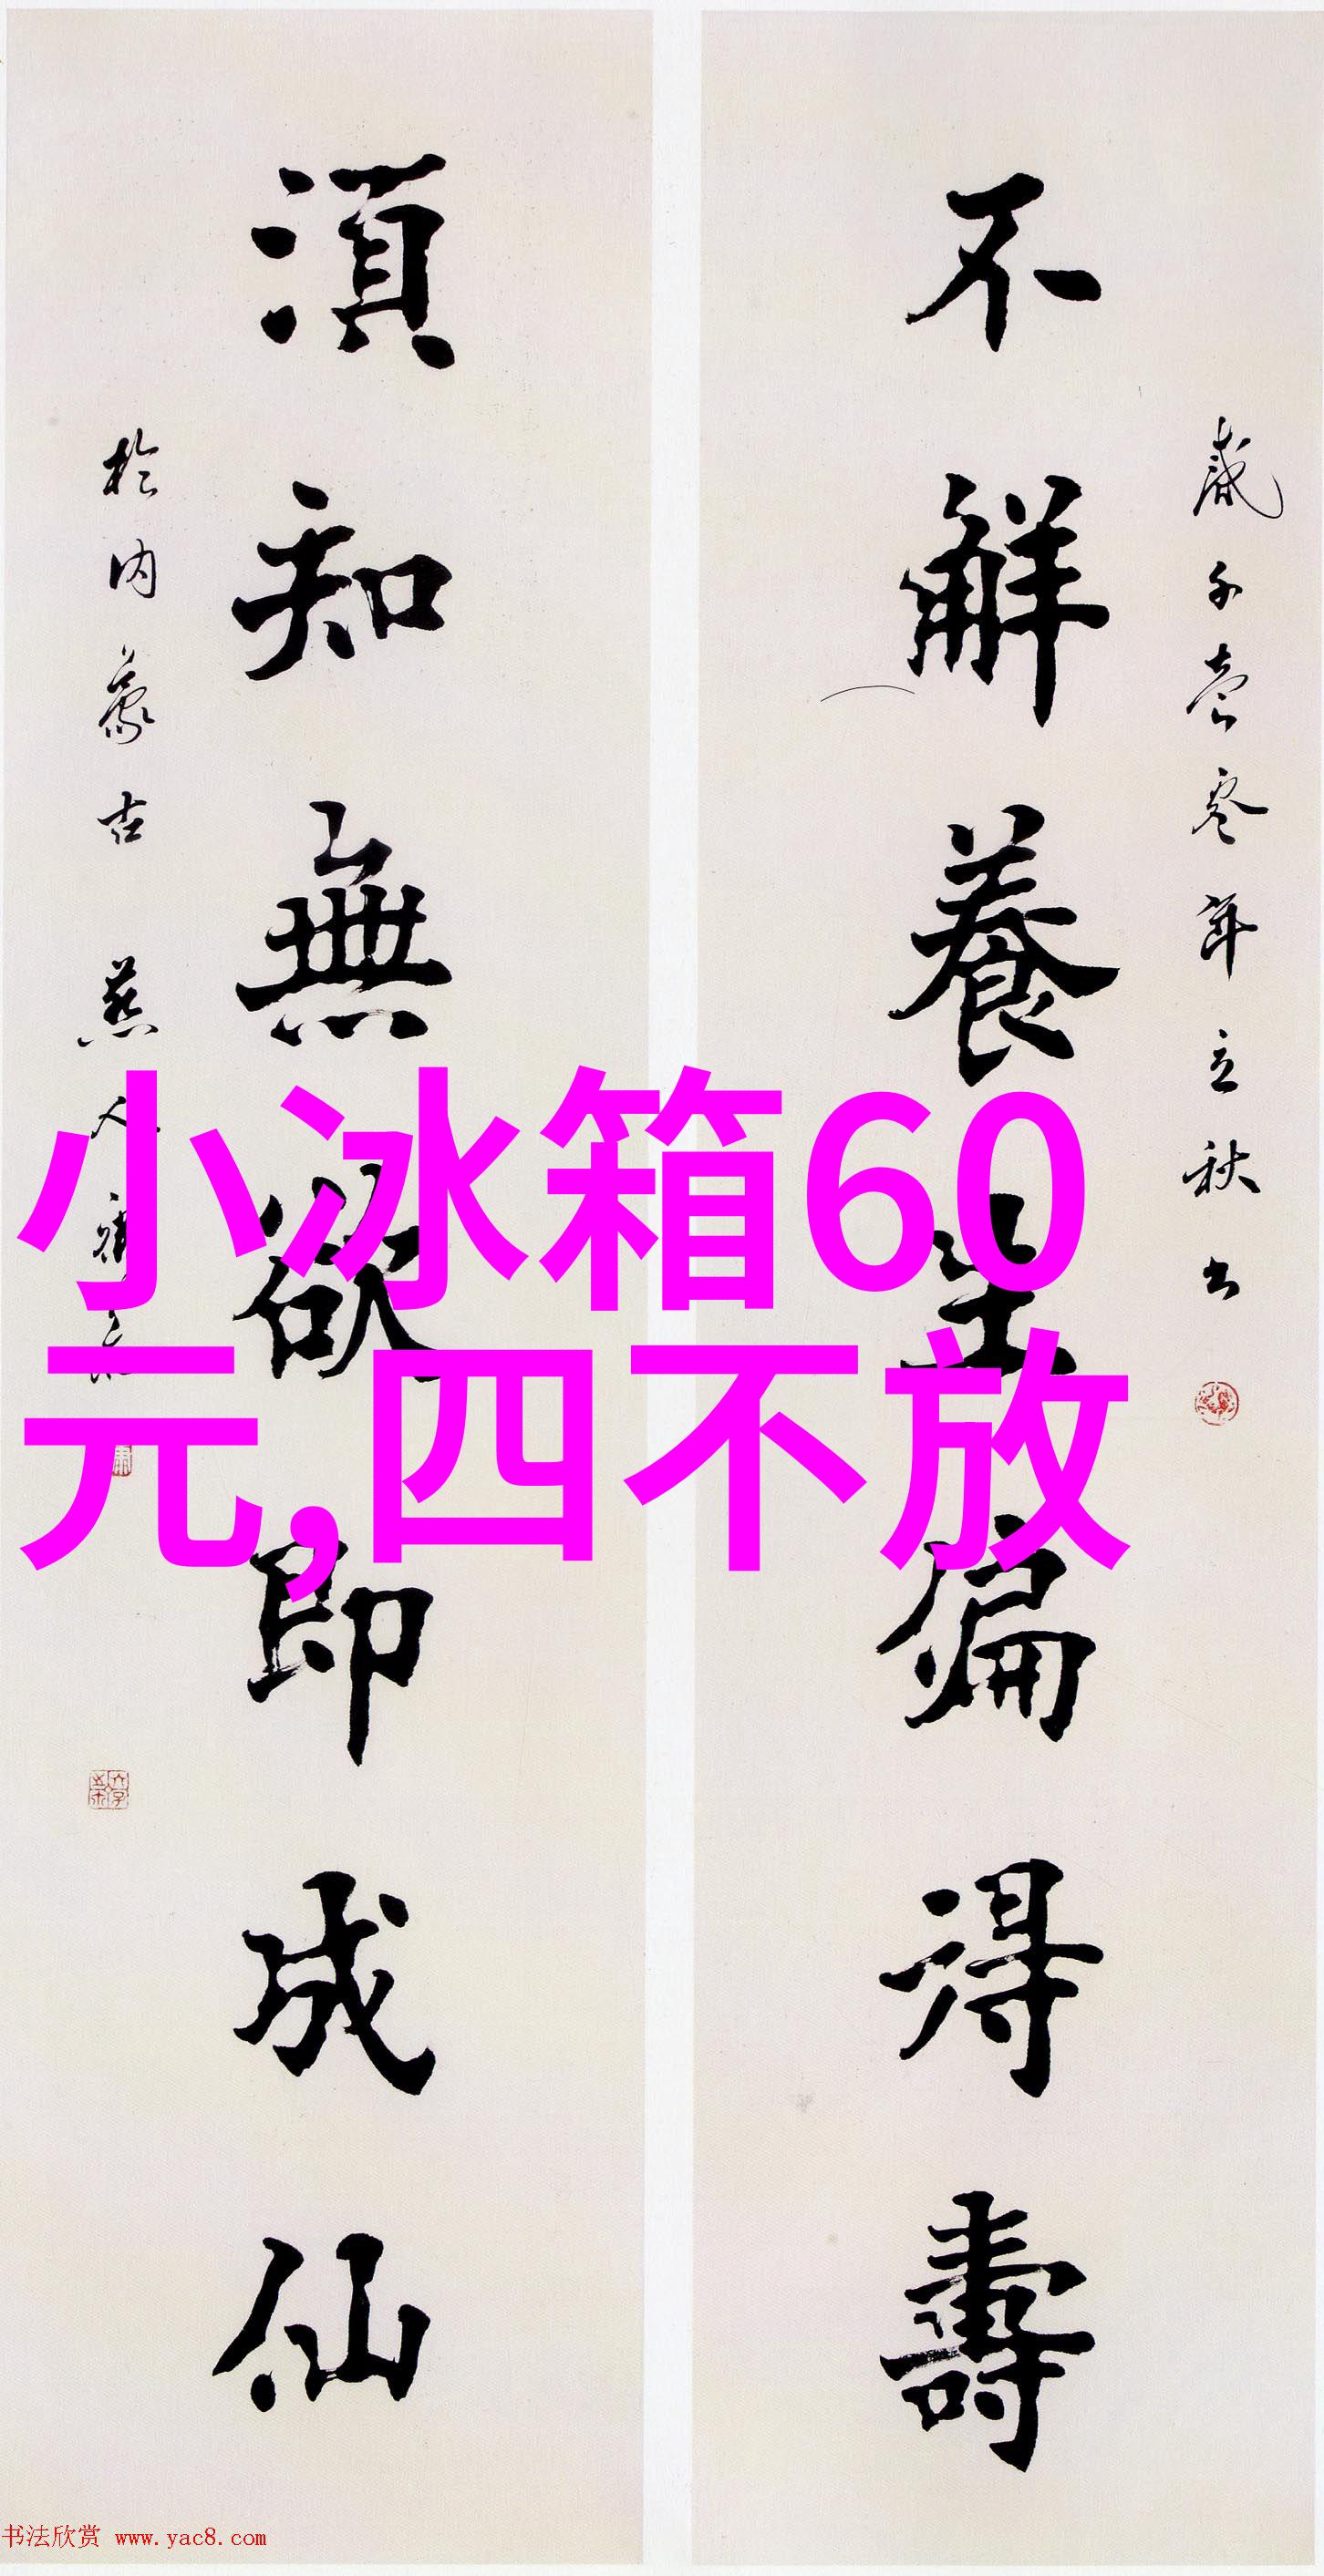 歲于壹零年立秋书
不解養生偏得壽
須知無欲即成仙
於内蒙古燕人
小冰箱60
元,四不放
书法欣赏 www.yac8.com